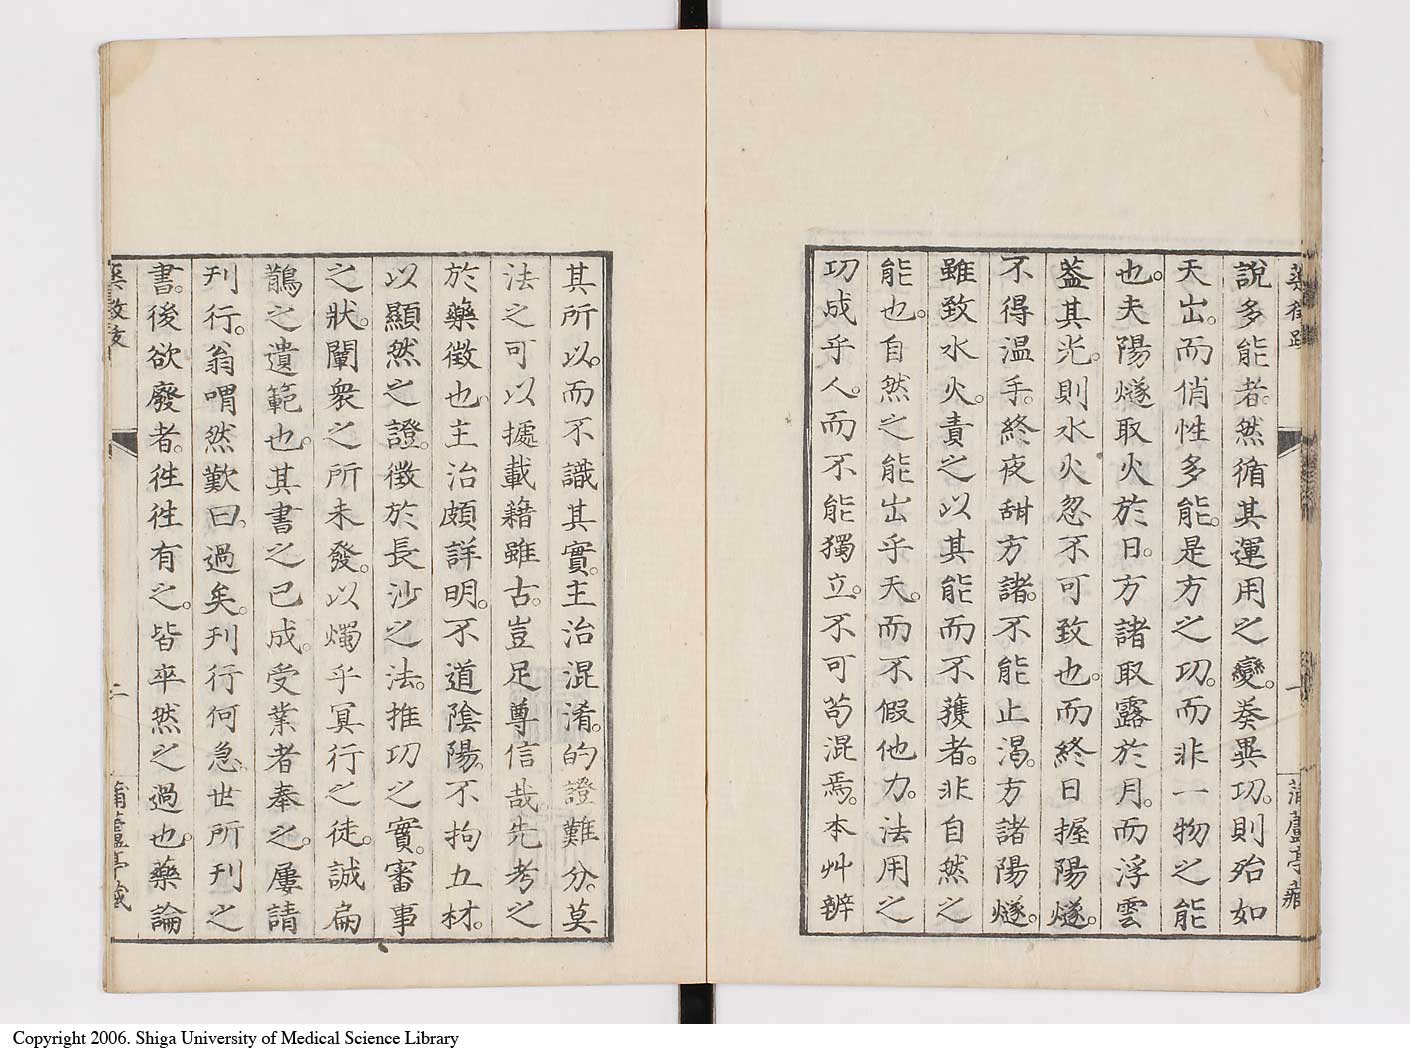 說多能者。然循其運用之變。奏異功。則殆如
天出。而俏性多能。是方之功。而非一物之能
也。夫陽燧取火於日。方諸取露於月。而浮雲
蓋其光。則水火忽不可致也。而終日握陽燧。
不得温手。終夜甜方諸。不能止渴。方諸陽燧。
雖致水火。責之以其能而不獲者。非自然之
能也。自然之能出乎天。而不假他力。法用之
功成乎人。而不能獨立。不可茍混焉。本艸辨
其所以。而不識其實。主治混淆。的證難分。莫
法之可以據載籍雖古。豈足尊信哉。先考之
於藥徵也。主治頗詳明。不道陰陽。不拘五材。
以顯然之證。徵於長沙之法。推功之實。審事
之狀。闡衆之所未發。以燭乎冥行之徒。誠扁
鵲之遺範也。其書之已成。受業者奉之。屢請
刊行。翁喟然歎曰。過矣。刊行何急。世所刊之
書。後欲廢者。徃徃有之。皆卒然之過也。藥論
二
蒲蘆亭藏
Copyright 2006. Shiga University of Medical Science Library